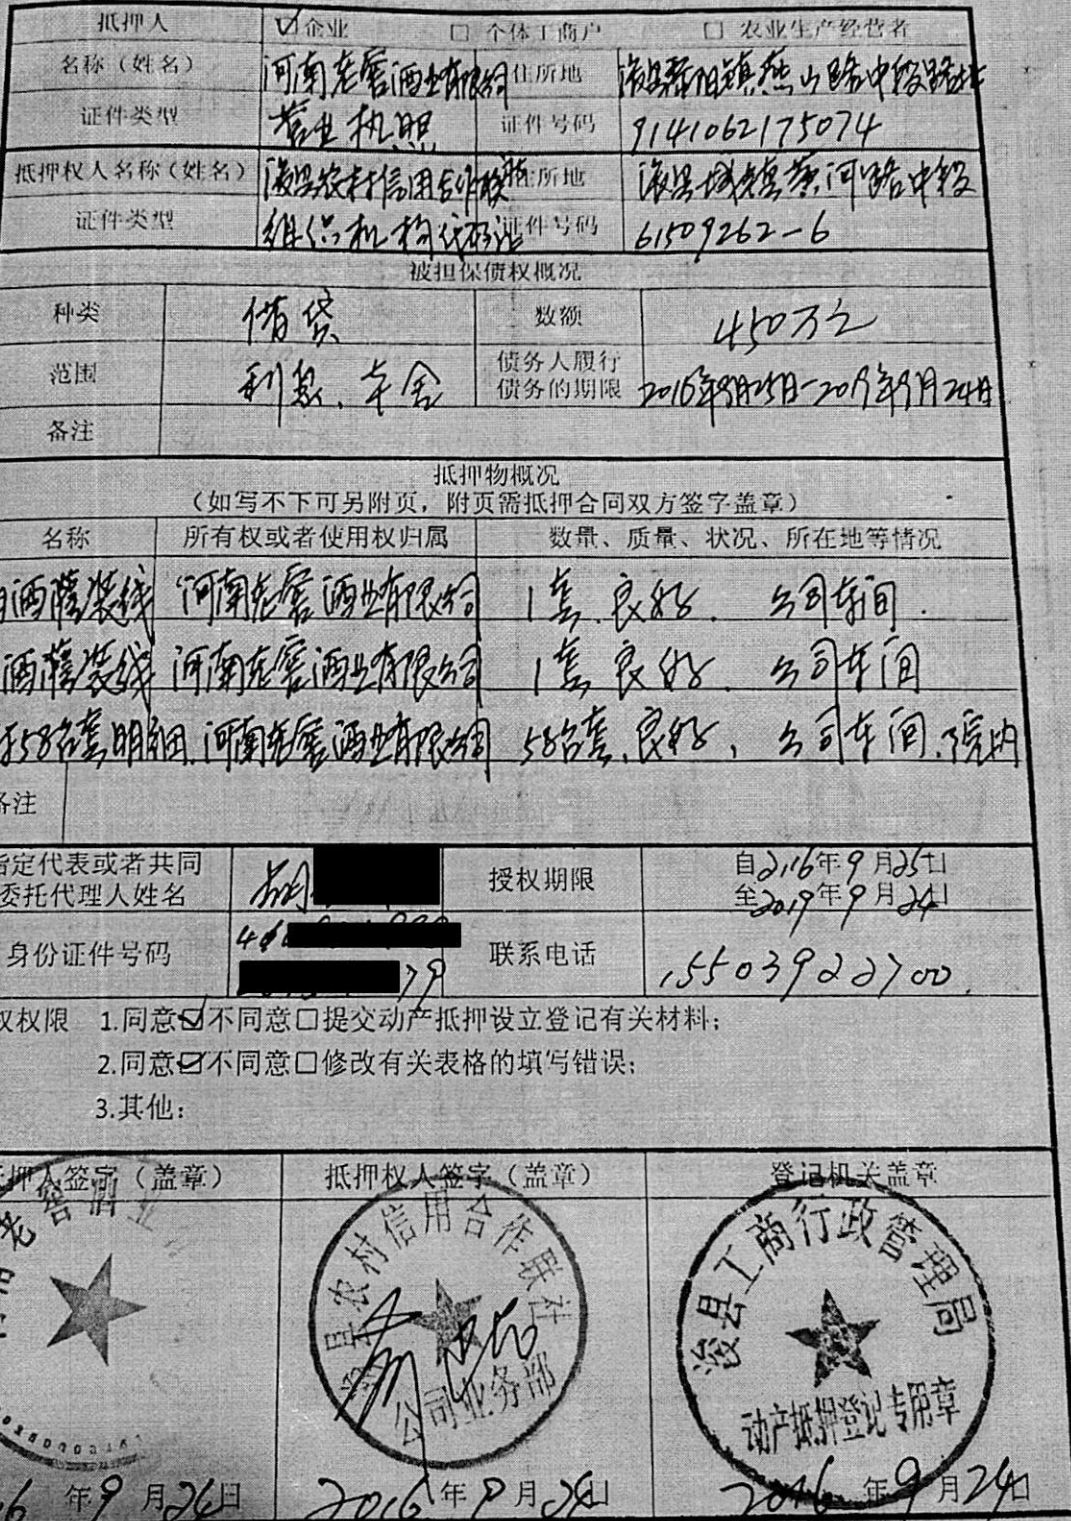 抵押人 ☑企业 □ 个体工商户 □ 农业生产经营者
名称（姓名） 河南老窖酒业有限公司 住所地 浚县黎阳镇燕山路中段路北
证件类型 营业执照 证件号码 9141062175074
抵押权人名称（姓名） 浚县农村信用合作联社 住所地 浚县城关镇黄河路中段
证件类型 组织机构代码证 证件号码 61509262-6
被担保债权概况
种类 借贷 数额 450万元
范围 利息、本金 债务人履行
债务的期限 2016年9月25日-2019年9月24日
备注
抵押物概况
（如写不下可另附页，附页需抵押合同双方签字盖章）
名称 所有权或者使用权归属 数量、质量、状况、所在地等情况
酒灌装线 河南老窖酒业有限公司 1套、良好、公司车间
酒灌装线 河南老窖酒业有限公司 1套、良好、公司车间
58台套明细 河南老窖酒业有限公司 58台套、良好、公司车间、院内
备注
指定代表或者共同
委托代理人姓名 授权期限 自2016年9月25日
至2019年9月24日
身份证件号码 79 联系电话 15503922700
权权限 1.同意☑不同意□提交动产抵押设立登记有关材料；
2.同意☑不同意□修改有关表格的填写错误；
3.其他：
抵押人签字（盖章） 抵押权人签字（盖章） 登记机关盖章
老窖酒业
浚县农村信用合作联社
公司业务部
浚县工商行政管理局
动产抵押登记专用章
6年9月24日 2016年9月24日 2016年9月24日